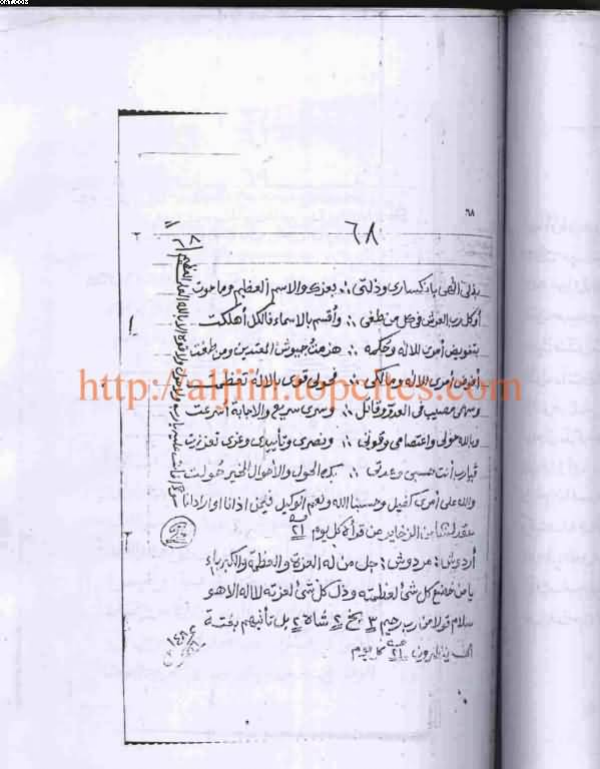 ٦٨
٦٨
بذلى الهى بانكسارى وذلتى ؞ بعزك والاسم العظيم وما حوت
أوكل رب العرش فى كل من طغى ؞ وأقسم بالاسماء فالكل أهلكت
بتفويض أمرى للاله وحكمه ؞ هزمت جيوش المعتدين ومن طغت
أفوض أمرى للاله ومالكى ؞ فحولى قوى بالاله تعظمت
وسهمى مصيب فى العدو وقاتل ؞ وسرى سريع والاجابة أسرعت
وبالله حولى واعتصامى وقوتى ؞ ونصرى وتأييدى وعزى تعززت
فيارب أنت حسبى وعدتى ؞ بك الحول والأهوال الخير حولت
والله على أمرى كفيل وحسبنا الله ونعم الوكيل فيمن اذانا او ارادانا
من الزخاير من قرأه كل يوم ٢١
أردوش ؛ مردوش ؛ جل من له العزة والعظمة والكبرياء
يا من خضع كل شئ لعظمته وذل كل شئ لعزته لا اله الا هو
سلام قولا من رب رحيم ٣ بخ ٢ شاه ٢ بل تأتيهم بغتة
ينظرون ٢١ كل يوم
http://aljiin.topcities.com